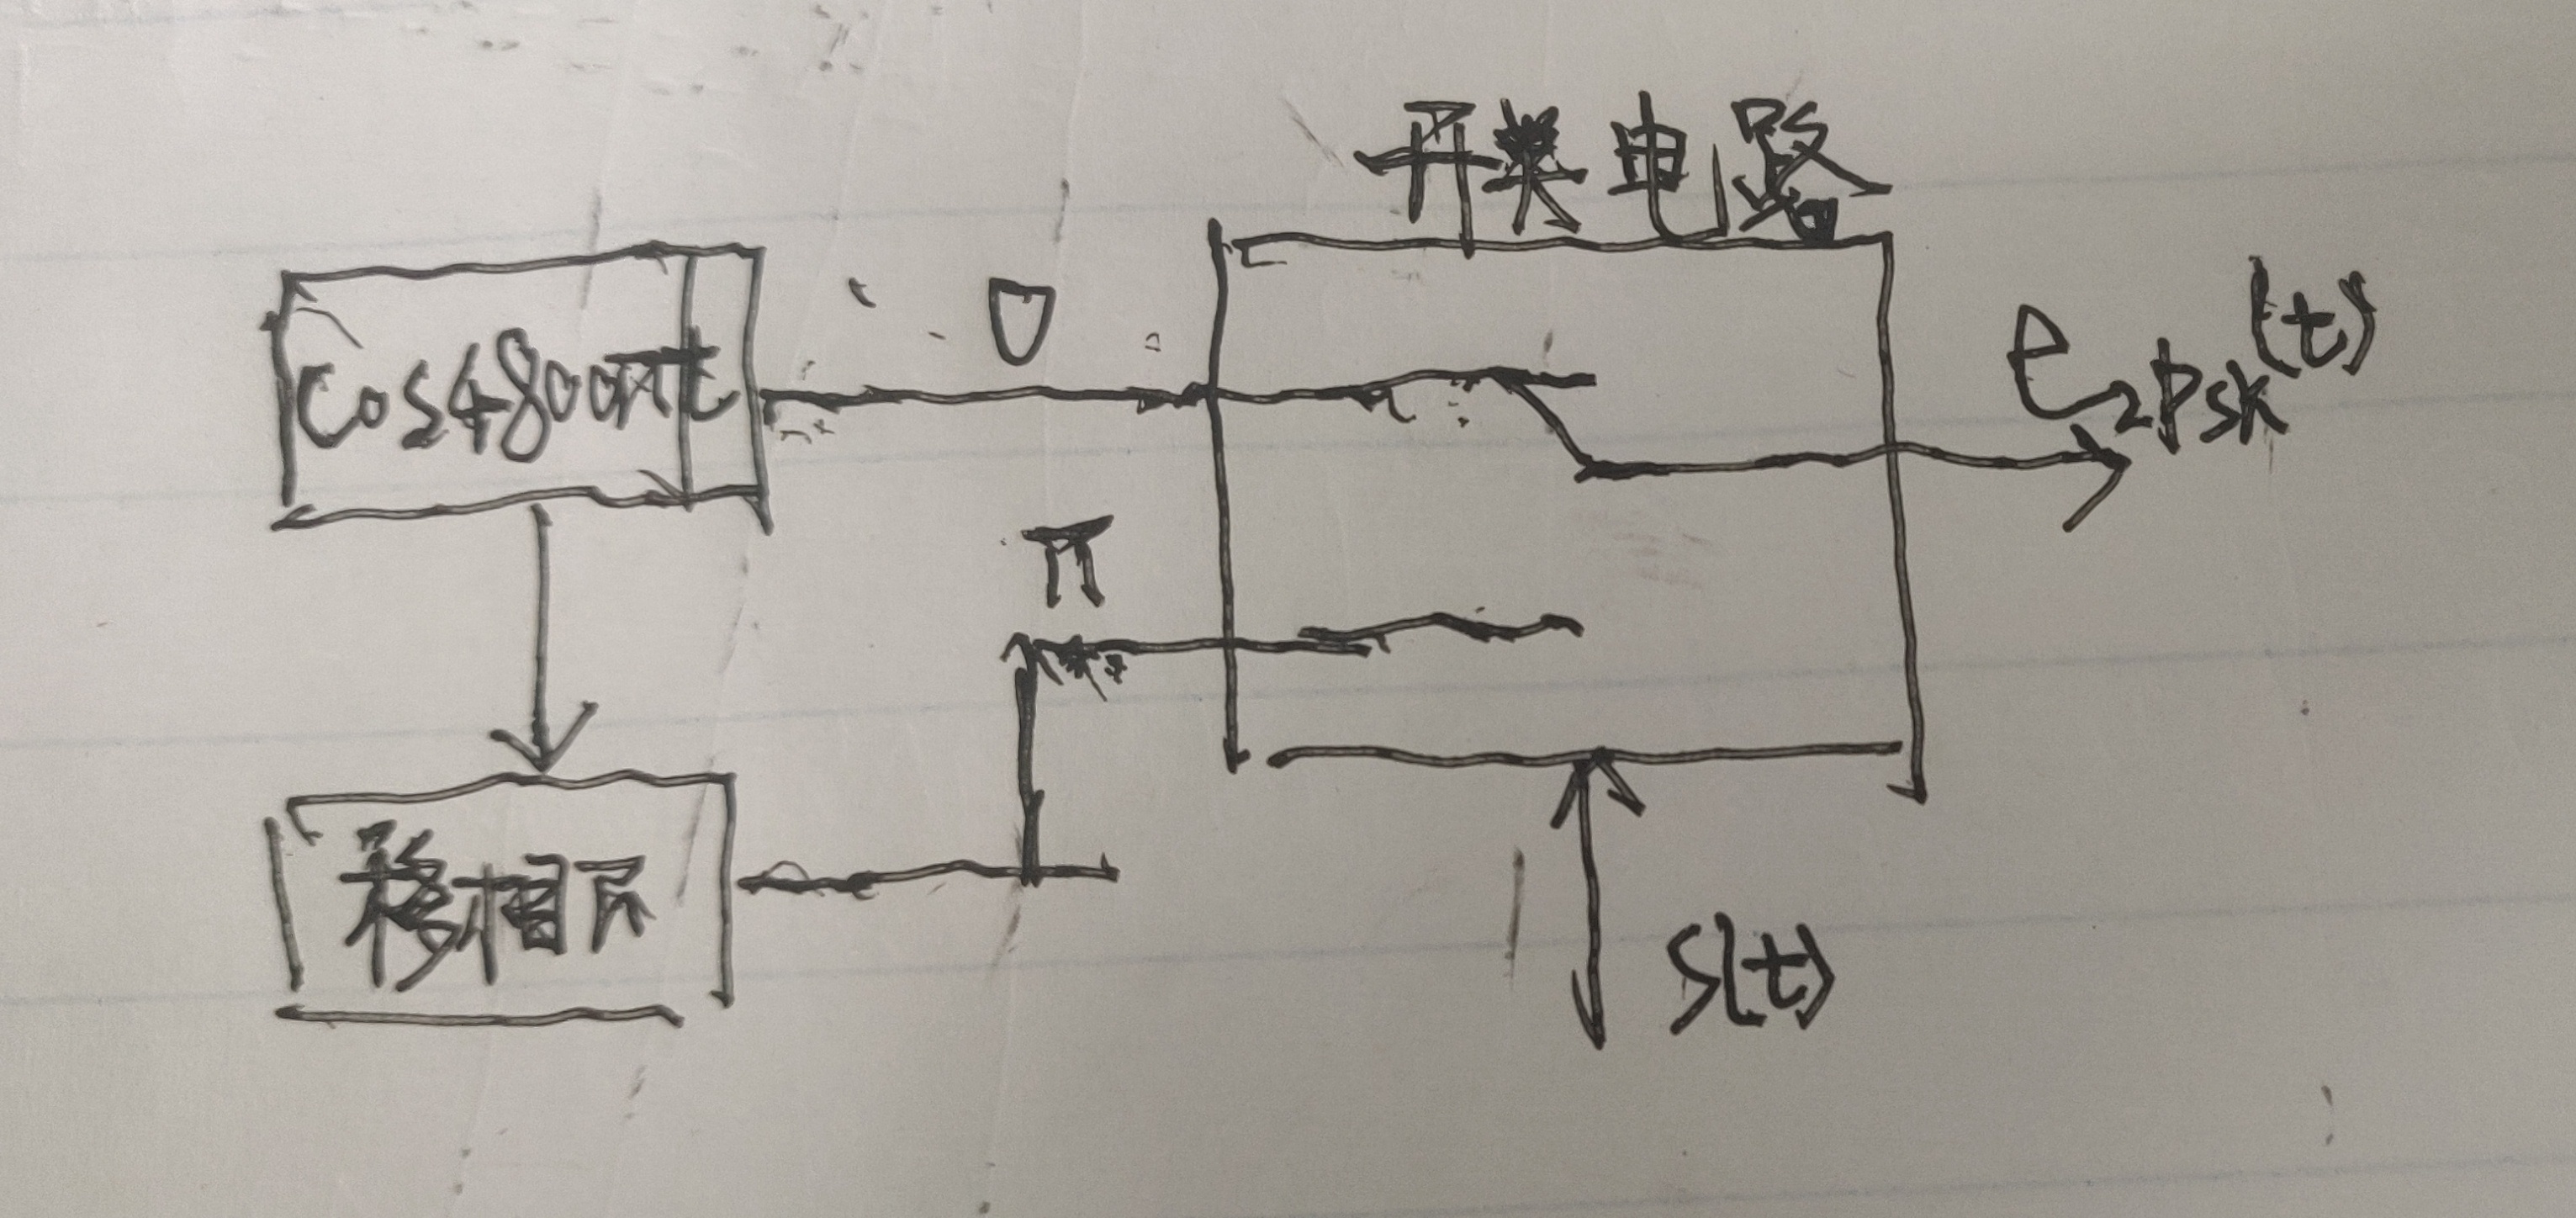 开关电路
cos4800πt
0
e2psk(t)
π
移相π
s(t)